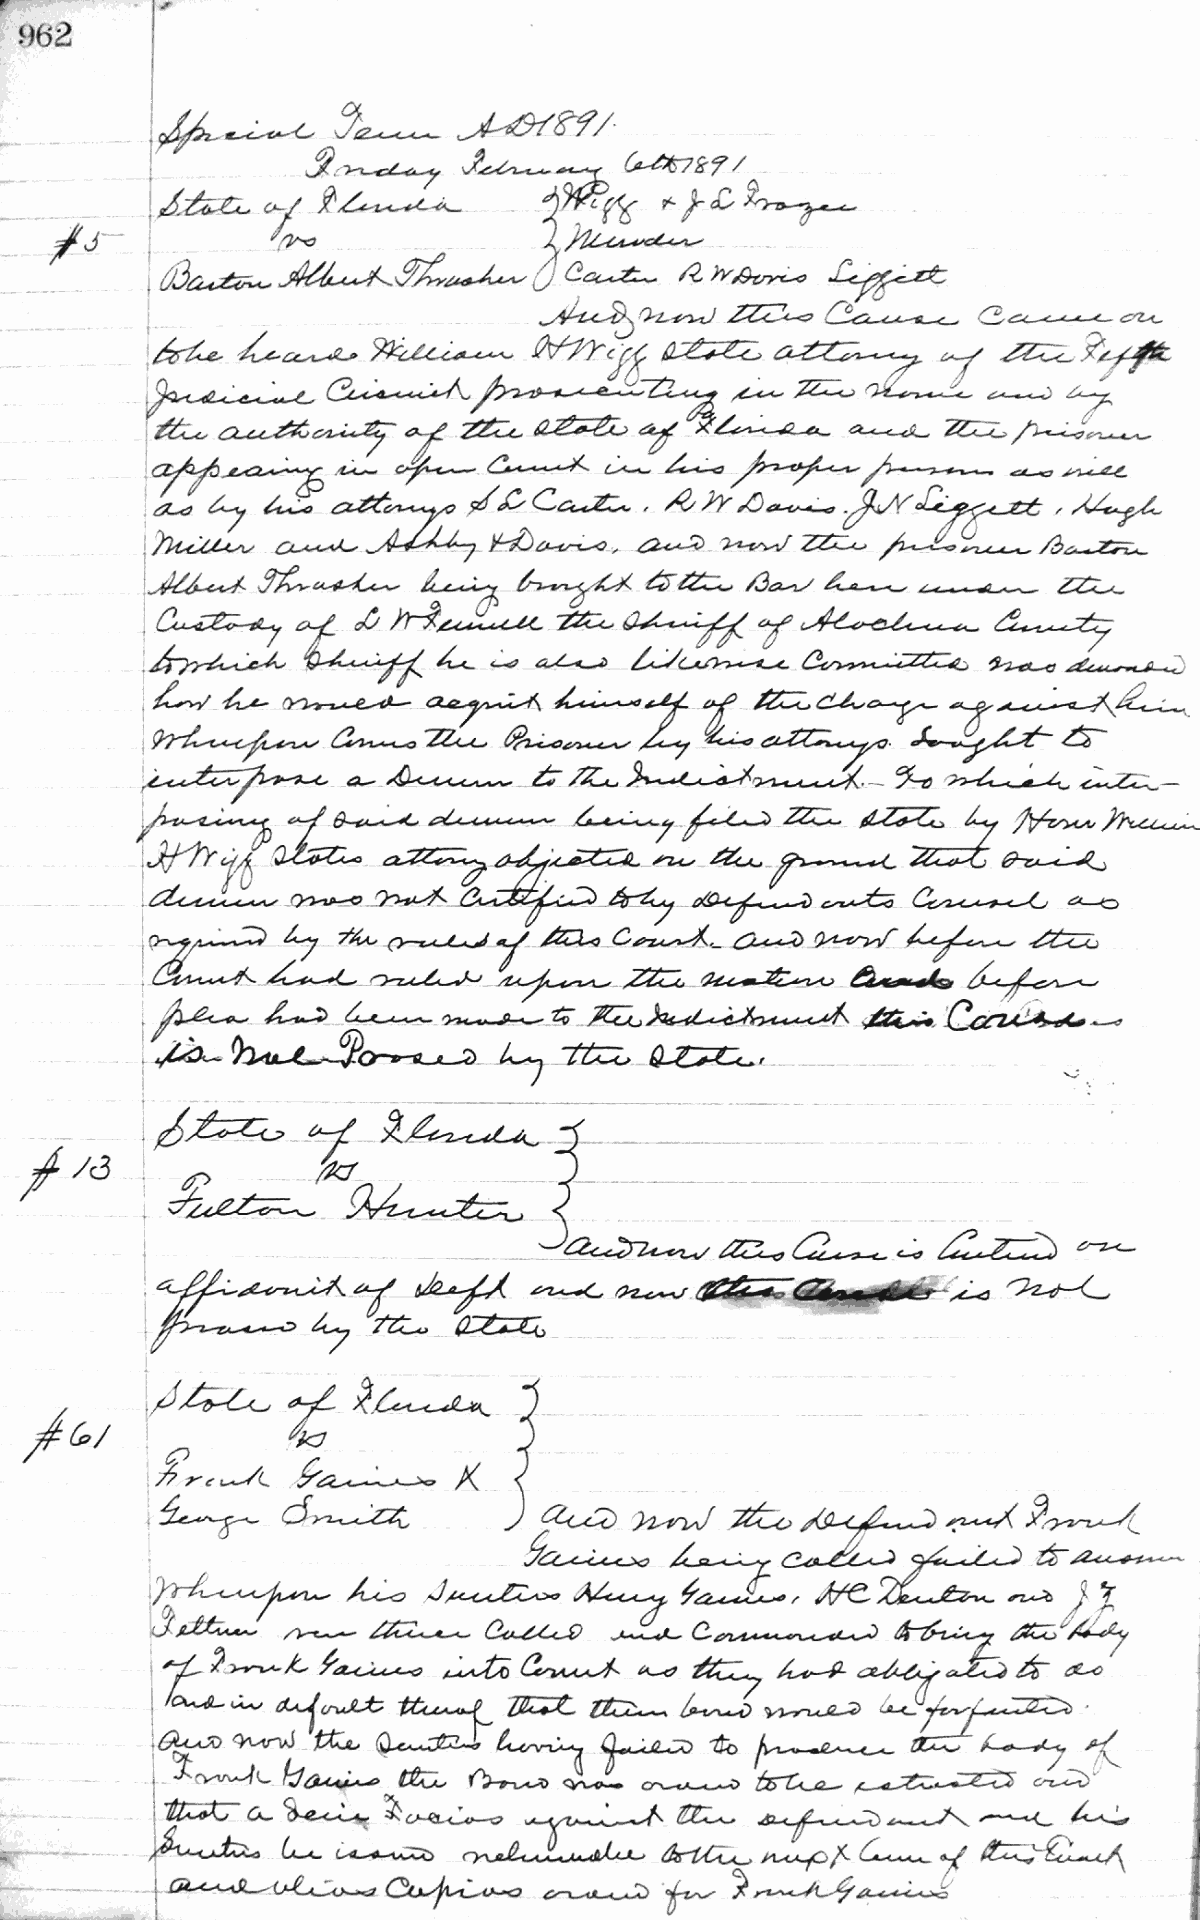 962
Special Term AD1891.
Friday February 6th 1891
State of Florida } Wigg & J L Frazee
#5 vs } Murder
Barton Albert Thrasher } Carter R W Davis Liggett
And now this Cause came on
to be heard William H Wigg State attorney of the Fifth
Judicial Circuit prosecuting in the name and by
the authority of the State of Florida and the prisoner
appearing in open Court in his proper person as well
as by his attorneys S L Carter, R W Davis. J N Liggett, Hugh
Miller and Ashby & Davis, and now the prisoner Barton
Albert Thrasher being brought to the Bar here under the
Custody of L W Fennell the Sheriff of Alachua County
to which Sheriff he is also likewise Committed was demanded
how he would acquit himself of the charge against him
Whereupon Comes the Prisoner by his attorneys. Sought to
interpose a Demurr to the Indictment - To which inter-
posing of said demurr being filed the State by Hon William
H Wigg States attorney objected on the ground that said
demurr was not Certified to by Defendants Counsel as
required by the rules of this Court. and now before the
Court had ruled upon the motion and before
plea had been made to the Indictment this Cause
is Nol Prosed by the State.
State of Florida }
#13 vs }
Fulton Hunter }
and now this Cause is Contind on
affidavit of Deft and now this Cause is Nol
prosed by the State
State of Florida }
#61 vs }
Frank Gaines X
George Smith } and now the Defendant Frank
Gaines being called failed to answer
Whereupon his Sureties Henry Gaines, H C Denton and J
Fettner were thrice Called and Commanded to bring the body
of Frank Gaines into Court as they had obligated to do
and in default thereof that their bond would be forfeited.
and now the Sureties having failed to produce the body of
Frank Gaines the Bond was ordered to be estreated and
that a Scire Facias against the defendant and his
Sureties be issued returnable to the next term of this Court
and alias Capias ordered for Frank Gaines